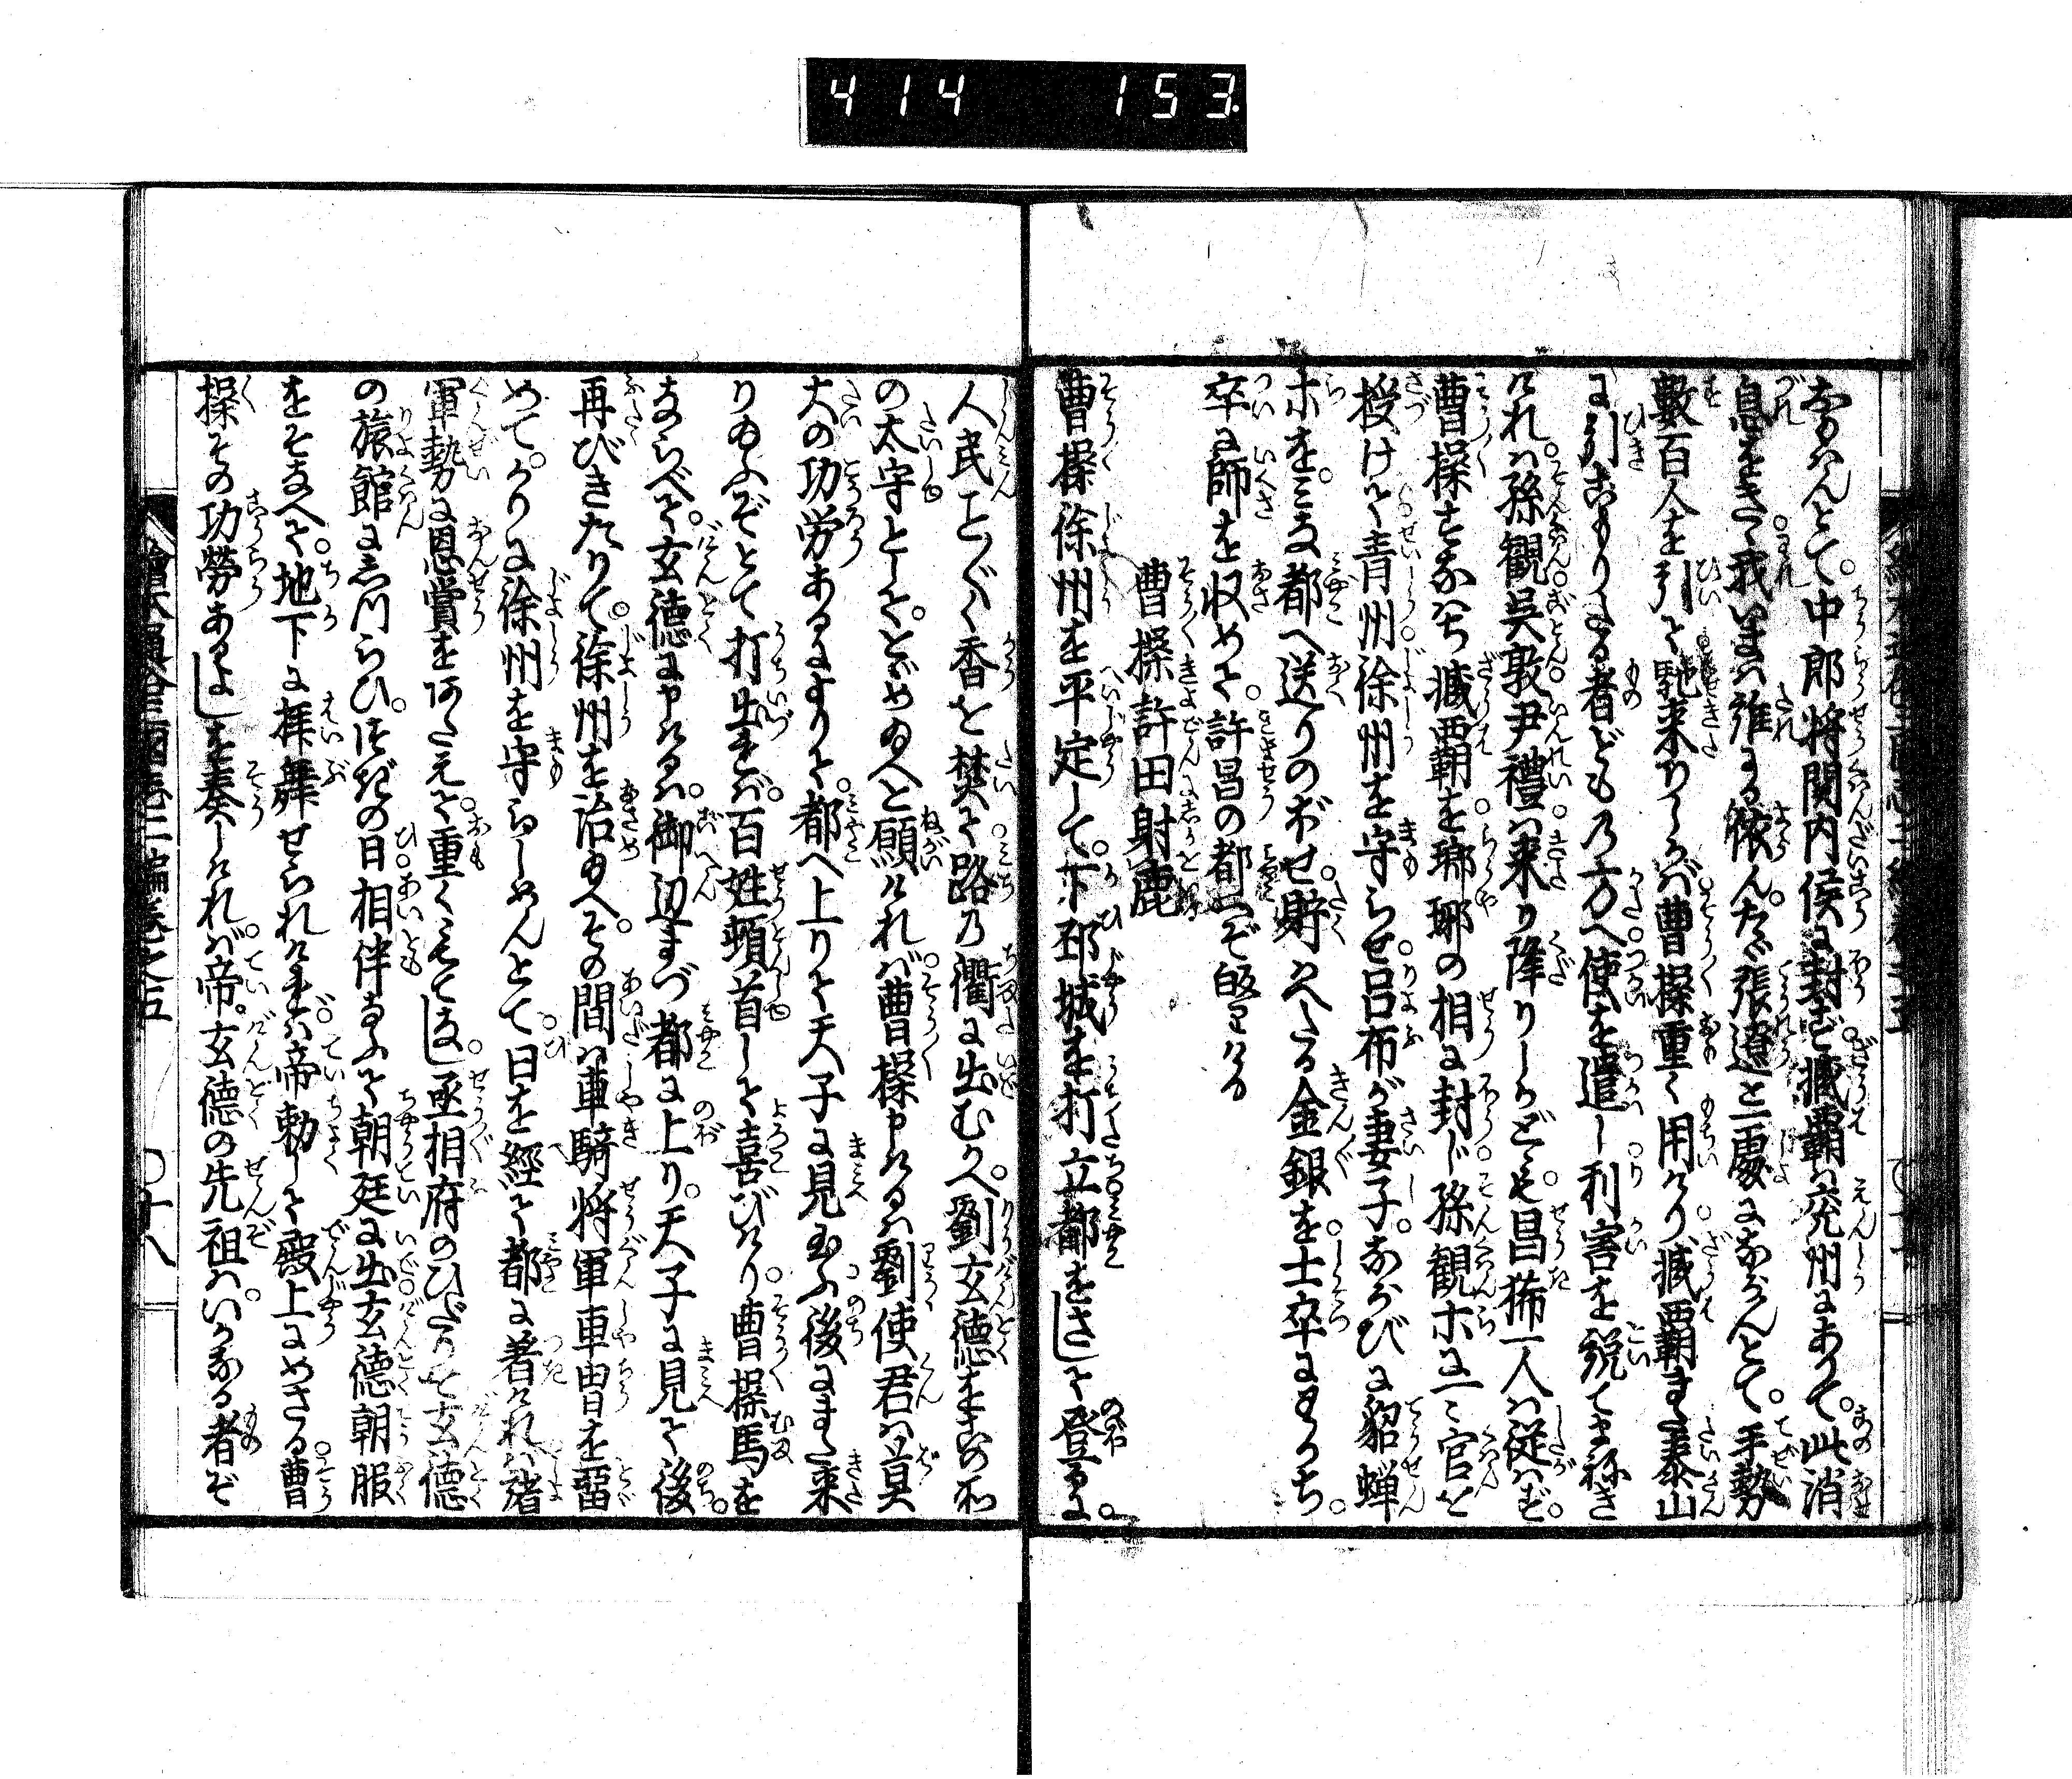 なはんとて。中郎将関内侯に封ず。臧覇は兗州にありて。此消
息をきゝ。我いまは誰にか依らん。たゞ張遼と一處にならんとて。手勢
數百人を引て馳来りしかば。曹操重く用けり。臧覇また泰山
に引こもりたる者どもの方へ。使を遣し利害を説てまねき
ければ。孫観。呉敦。尹禮は来り降りしかども。昌豨一人は従はず。
曹操すなはち臧覇を瑯琊の相に封じ。孫観ホに一々官を
授けて青州。徐州を守らせ。呂布が妻子。ならびに貂蝉
ホを。みな都へ送りのぼせ。貯へたる金銀を。士卒にわかち。
卒に師を収めて。許昌の都へぞ皈りける
曹操許田射鹿
曹操徐州を平定して。下邳城を打立都をさして登るに。
人民こと〴〵く香を焚て路の衢に出むかへ。劉玄德をこの州
の太守として。とゞめ玉へと願ければ。曹操申けるは劉使君は莫
大の功労あるによりて。都へ上りて天子に見玉ふ後にまた来
り玉ふぞとて打出ければ。百姓頓首して喜びけり。曹操馬を
ならべて。玄德に申けるは。御辺まづ都に上り。天子に見て後。
再びきたりて。徐州を治め玉へ。その間は車騎将軍車冑を畱
めて。かりに徐州を守らしめんとて。日を經て都に着ければ。諸
軍勢に恩賞をあたえて。重くもてなし。丞相府のひだりを玄德
の旅館にしつらひ。次の日相伴なふて朝廷に出。玄德朝服
をそなへて。地下に拜舞せられければ。帝勅して殿上にめさる。曹
操その功勞あるよしを奏しければ。帝。玄德の先祖は。いかなる者ぞ
繪本通俗三國志二編巻之五
十八
414 153